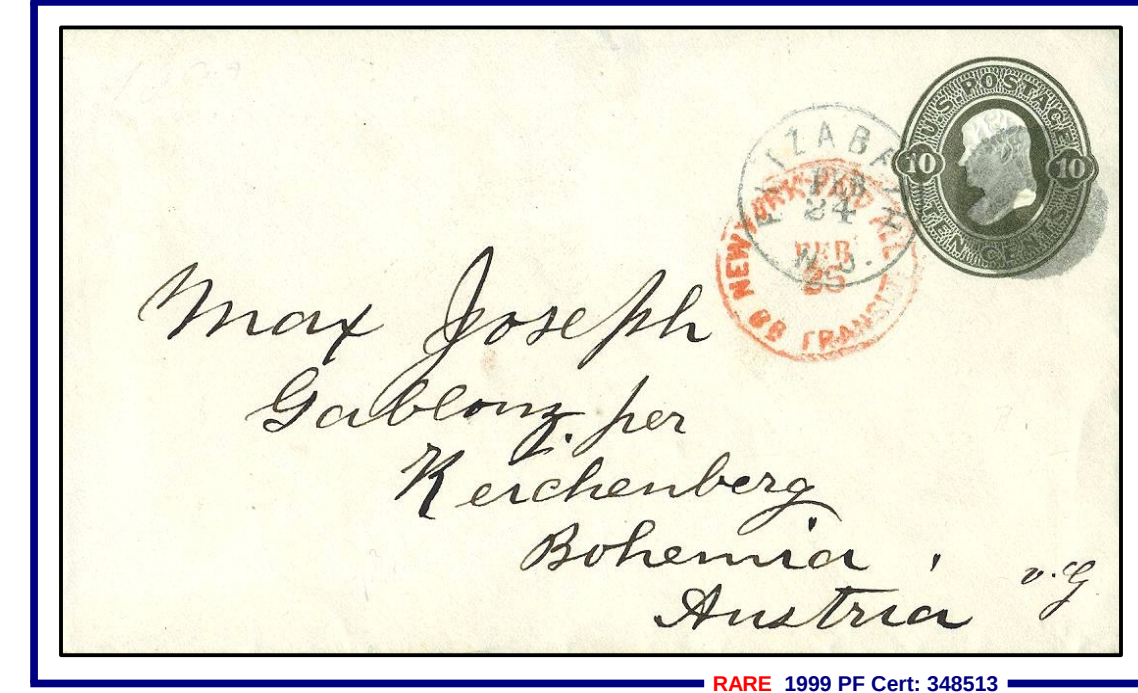 U.S. POSTAGE
10 10
TEN CENTS
ELIZABETH
FEB
24
N.J.
NEW YORK PAID ALL
FEB
25
BR TRANSIT
Max Joseph
Gablonz per
Reichenberg
Bohemia,
Austria
RARE 1999 PF Cert: 348513